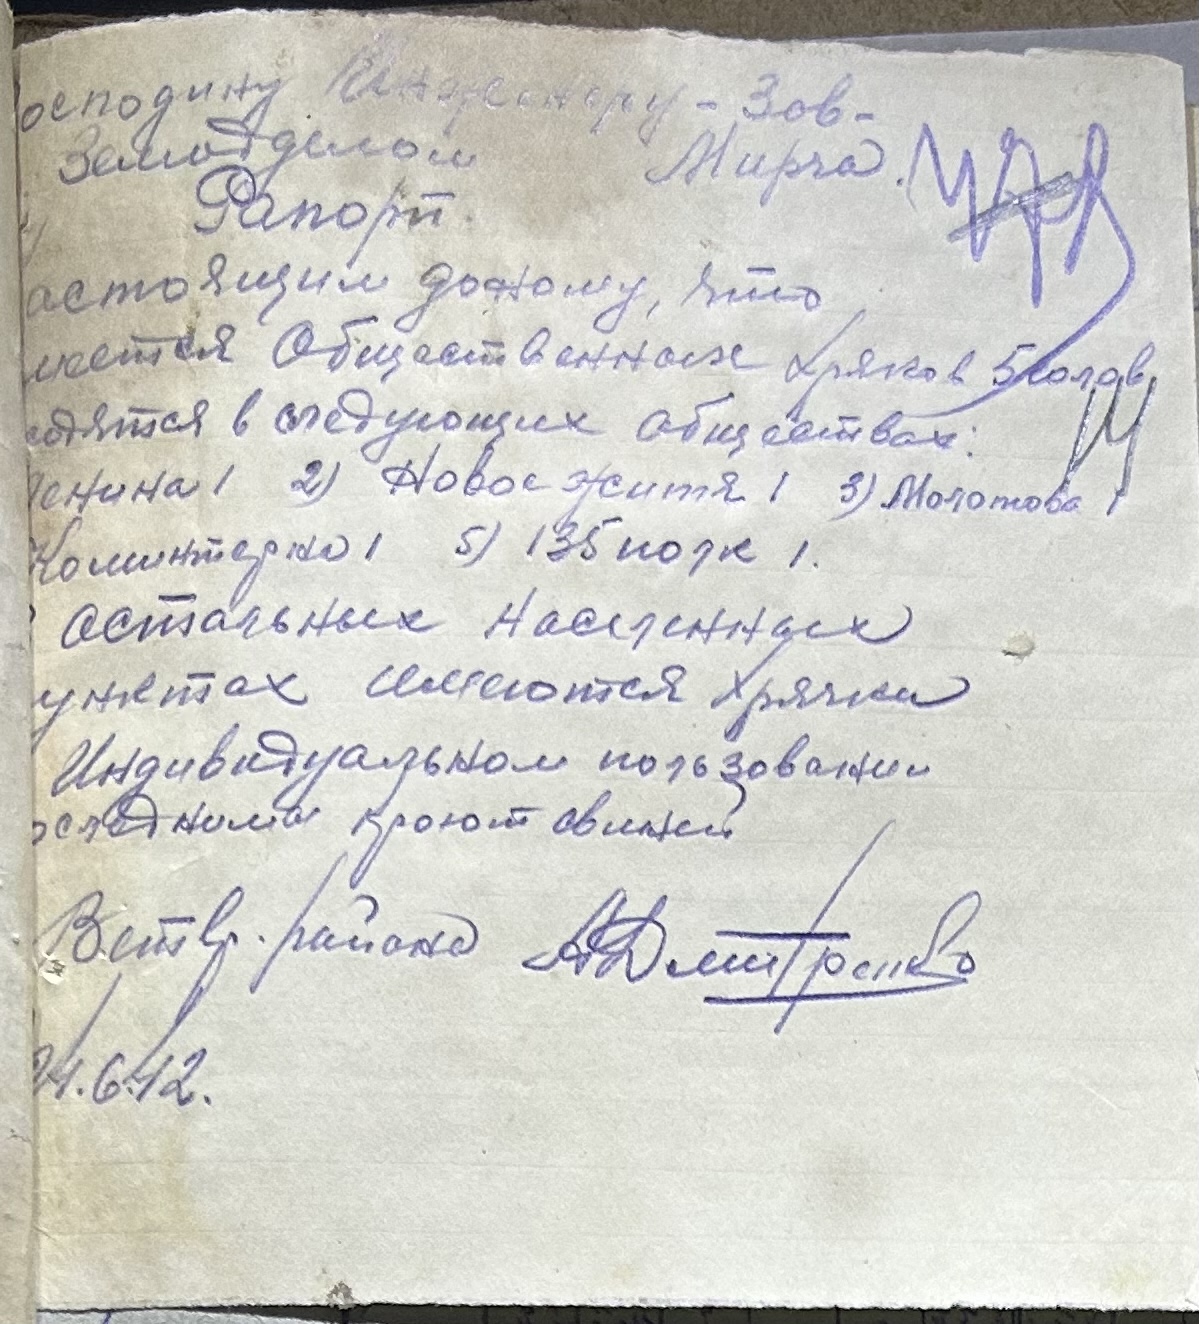 осподину Инженеру - Зав-
Земотделом Мирча.
Рапорт.
астоящим доношу, что
меется Общественных хряков 5 голов,
одятся в следующих обществах:
Ленина 1 2) Новое житя 1 3) Молотова 1
Коминтерна 1 5) 135 полк 1.
В остальных населенных
унктах имеются хрячки
Индивидуальном пользовании
оследними кроют свиней
Ветвр. района АДмитренко
24.6.42.